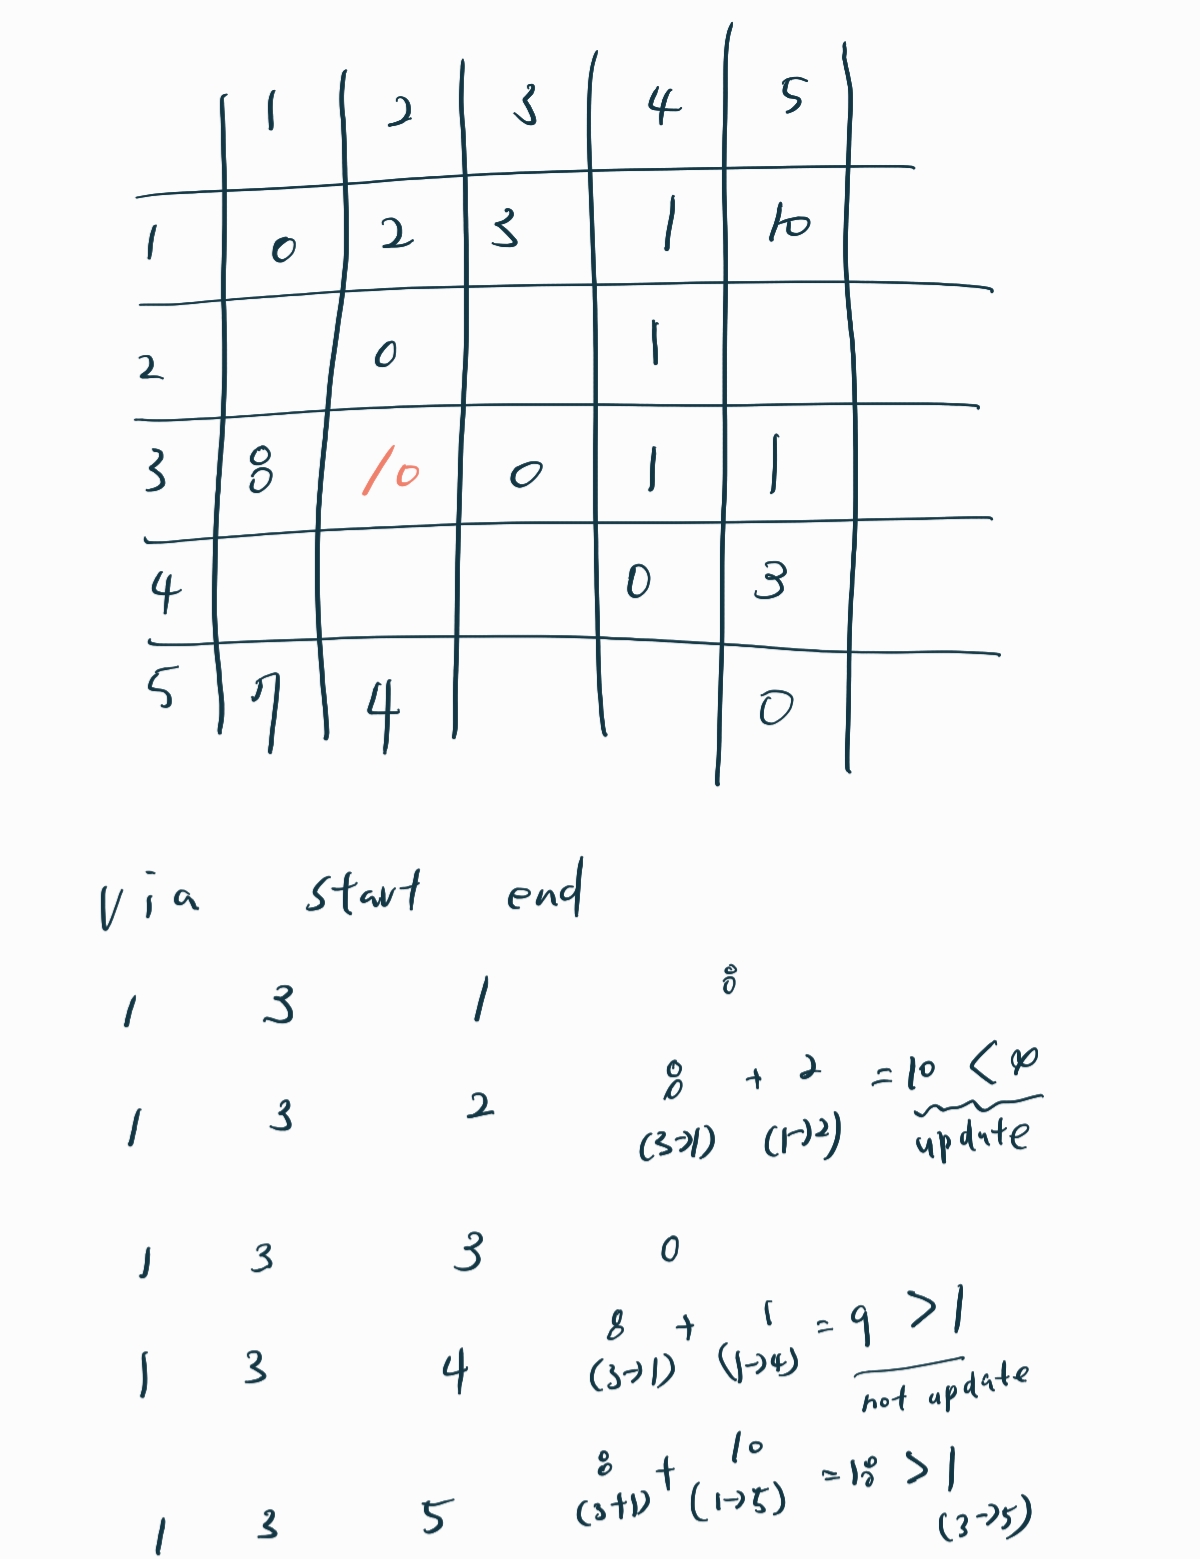 1 2 3 4 5
1 0 2 3 1 10
2 0 1
3 8 10 0 1 1
4 0 3
5 7 4 0
via start end
1 3 1 8
1 3 2 8 + 2 = 10 < ∞
(3→1) (1→2) update
1 3 3 0
1 3 4 8 + 1 = 9 > 1
(3→1) (1→4) not update
1 3 5 8 + 10 = 18 > 1
(3→1) (1→5) (3→5)